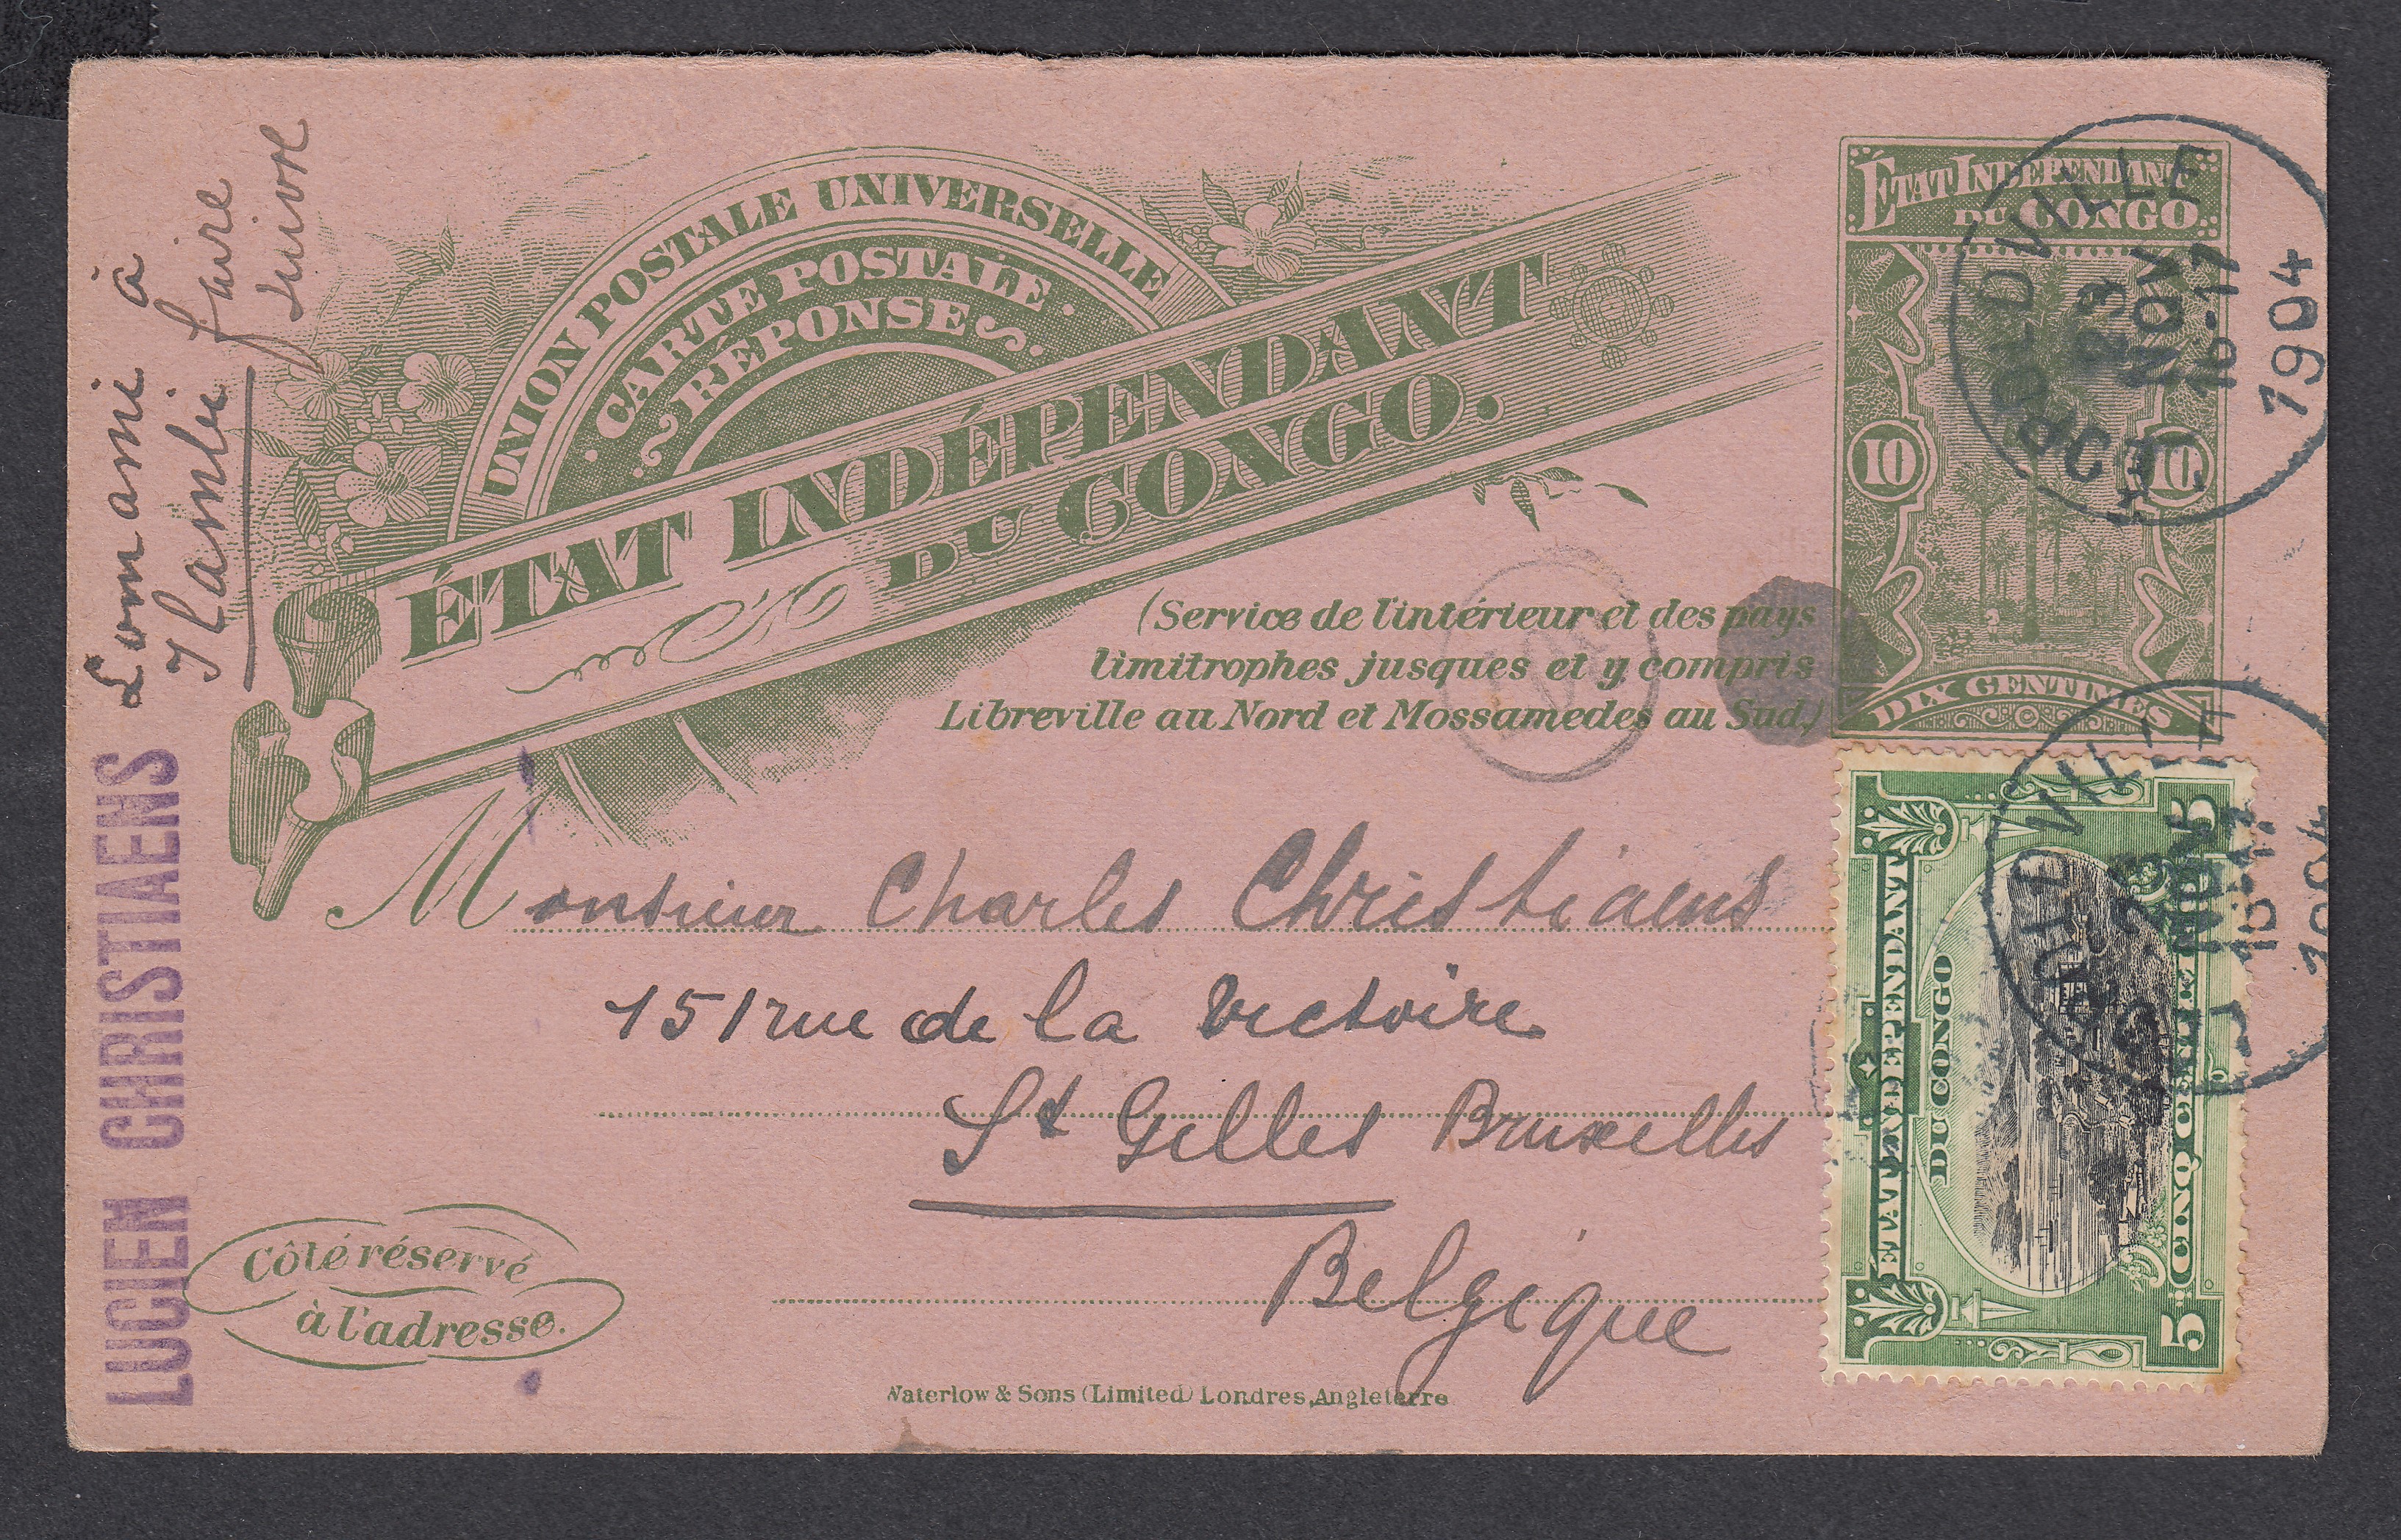 UNION POSTALE UNIVERSELLE
CARTE POSTALE
RÉPONSE
ÉTAT INDÉPENDANT
DU CONGO.
(Service de l'intérieur et des pays
limitrophes jusques et y compris
Libreville au Nord et Mossamedes au Sud.)
ÉTAT INDÉPENDANT
DU CONGO
10 10
DIX CENTIMES
LÉOPOLDVILLE
23
NOV
16-17
1904
Lomami à
faire
suivre
LUCIEN CHRISTIAENS
Monsieur Charles Christiaens
151 rue de la Victoire
St Gilles Bruxelles
Belgique
Côté réservé
à l'adresse.
Waterlow & Sons (Limited) Londres, Angleterre
5 5
ÉTAT INDÉPENDANT
DU CONGO
CINQ CENTIMES
NOV
16-17
1904